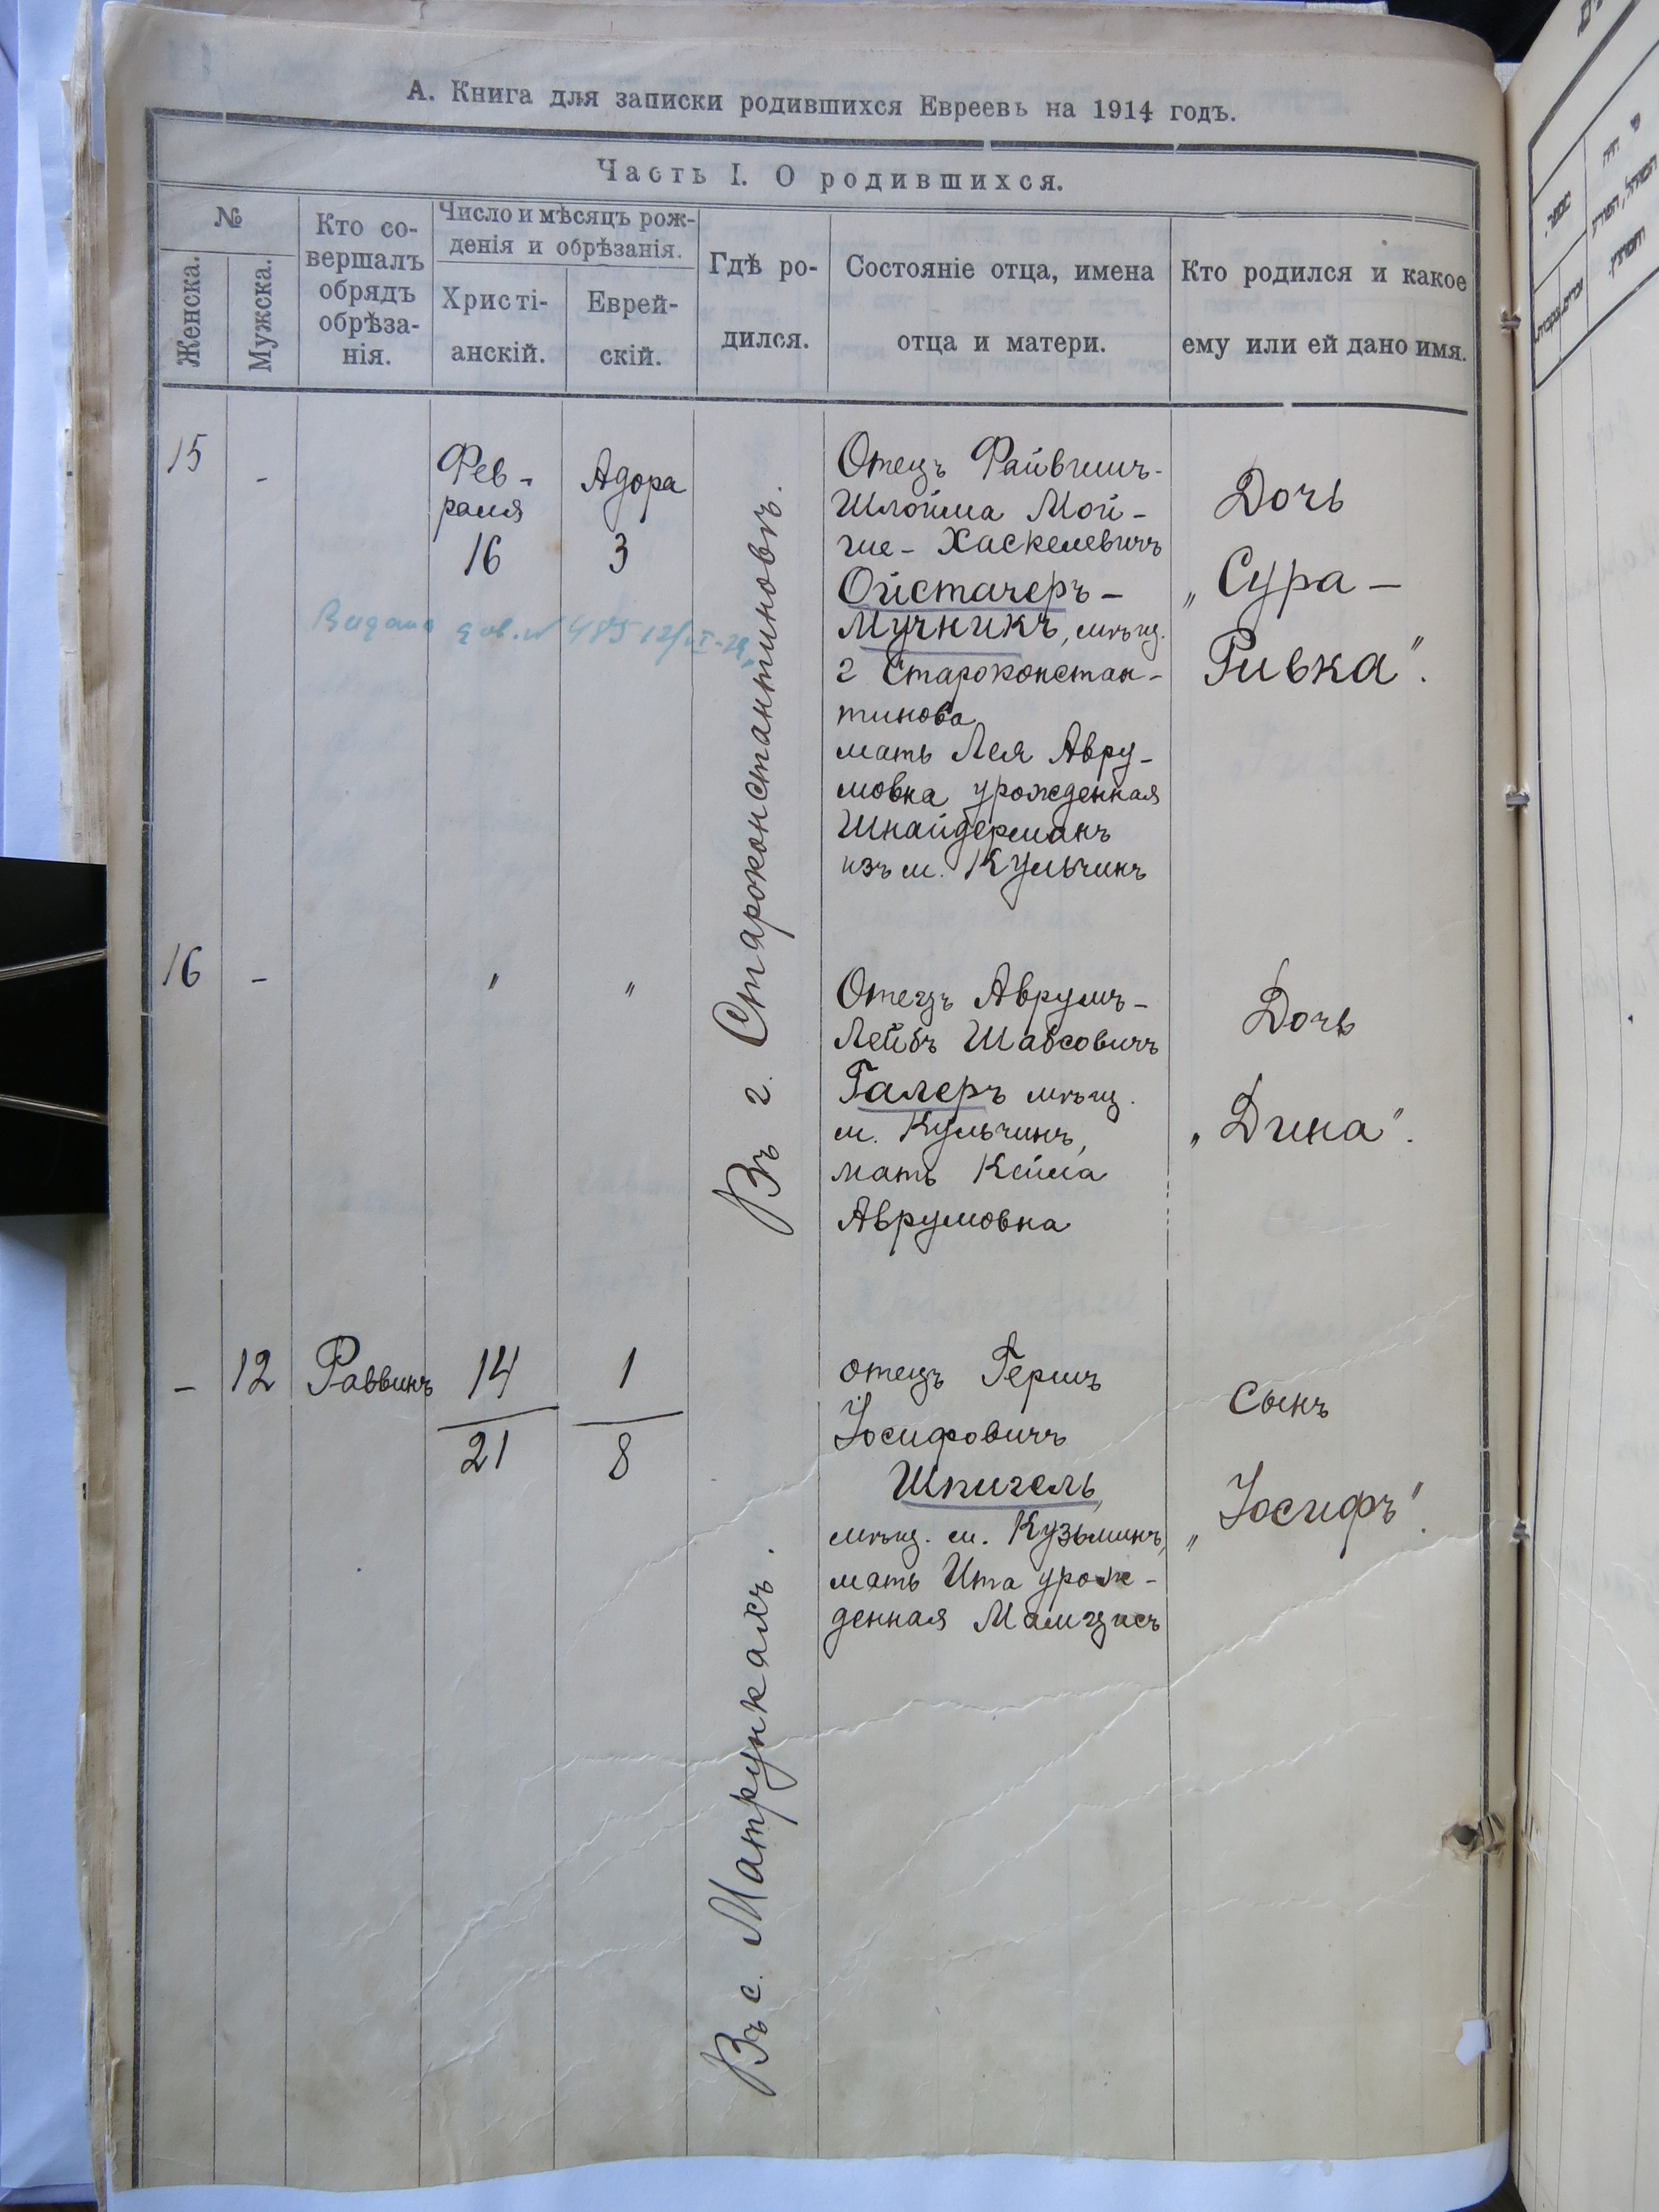 А. Книга для записки родившихся Евреевъ на 1914 годъ.
Часть I. О родившихся.
№
Женска.
Мужска.
Кто со-
вершалъ
обрядъ
обрѣза-
нія.
Число и мѣсяцъ рож-
денія и обрѣзанія.
Христі-
анскій.
Еврей-
скій.
Гдѣ ро-
дился.
Состояніе отца, имена
отца и матери.
Кто родился и какое
ему или ей дано имя.
15
-
Фев-
раля
16
Адора
3
Въ г. Староконстантиновъ.
Отецъ Файвишъ-
Шлойма Мой-
ше-Хаскелевичъ
Ойстачеръ-
Мучникъ, мѣщ.
г Староконстан-
тинова
мать Лея Авру-
мовна урожденная
Шнайдерманъ
изъ м. Кульчинъ
Дочь
„Сура-
Ривка".
Видана дов. №485 12/
16
-
"
"
Отецъ Аврумъ-
Лейбъ Шабсовичъ
Галеръ мѣщ.
м. Кульчинъ,
мать Кейла
Аврумовна
Дочь
„Дина".
-
12
Раввинъ
14
21
1
8
Въ с. Матрункахъ.
отецъ Гершъ
Іосифовичъ
Шпигель,
мѣщ. м. Кузьминъ,
мать Ита урож-
денная
Сынъ
„Іосифъ".